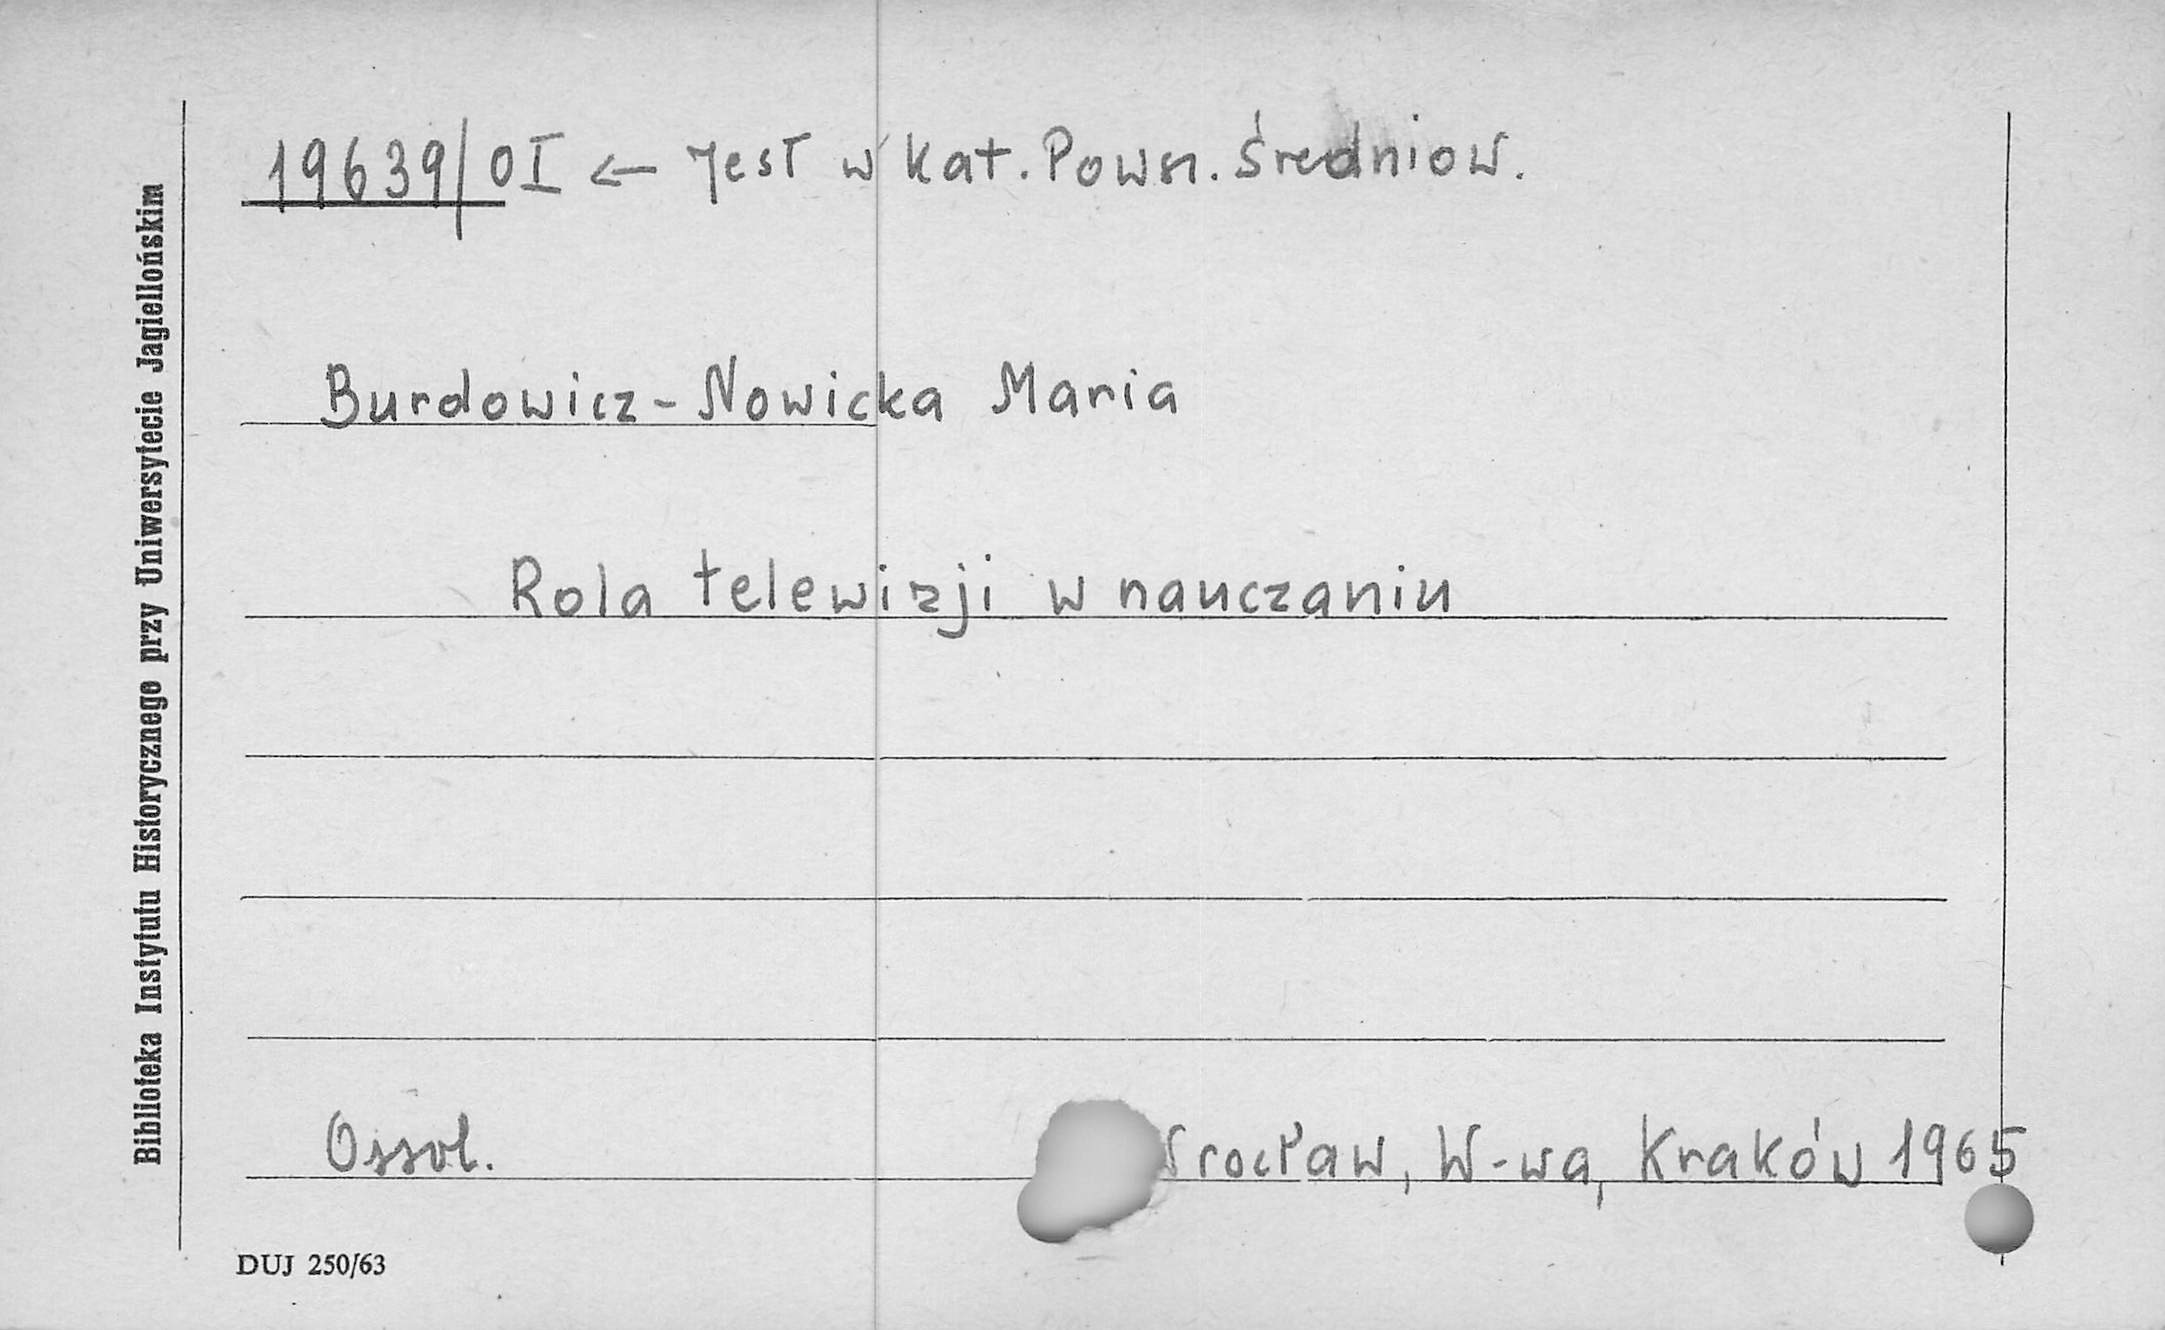 19639/OI ← jest w kat. Powsz. Średniow.
Burdowicz-Nowicka Maria
Rola telewizji w nauczaniu
Ossol. Wrocław, W-wa, Kraków 1965
DUJ 250/63
Biblioteka Instytutu Historycznego przy Uniwersytecie Jagiellońskim